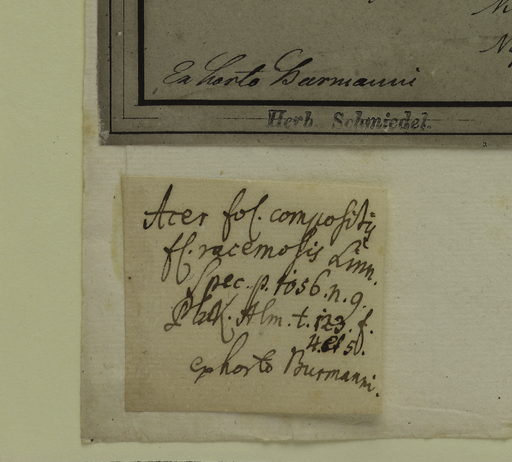 Ex horto Burmanni
Herb. Schmiedel.
Acer fol. compositis
fl. racemosis Linn.
Spec. p. 1056. n. 9.
Pluk. Alm. t. 123. f.
4. et 5.
ex horto Burmanni.